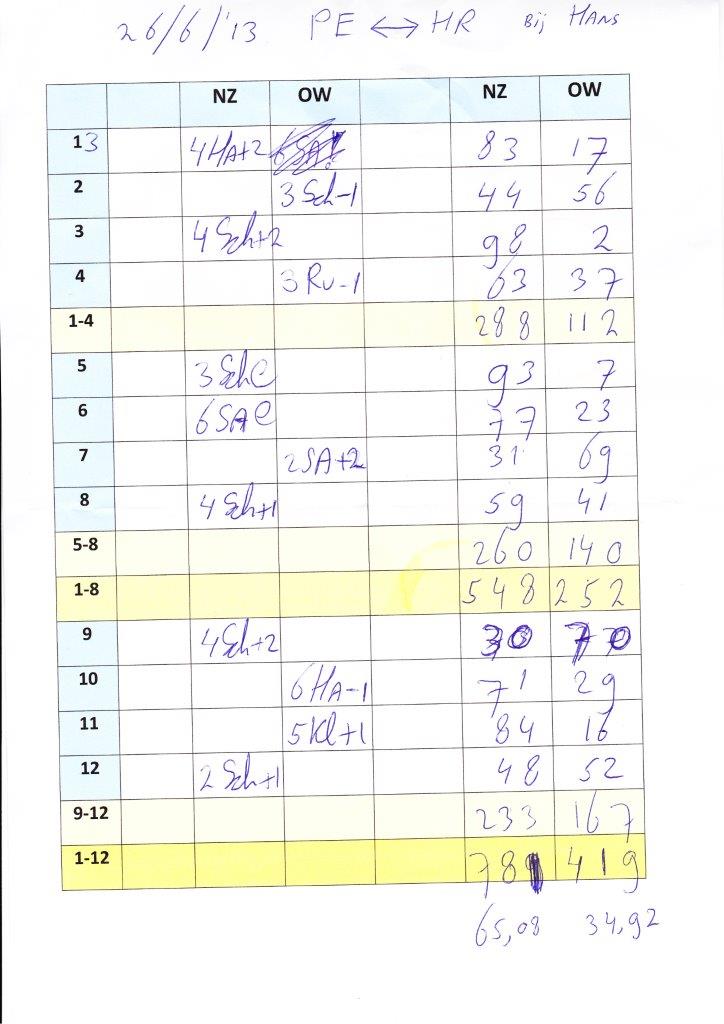 26/6/'13 PE ↔ HR Bij HANS
NZ OW NZ OW
13 4HA+2 83 17
2 3Sch-1 44 56
3 4Sch+2 98 2
4 3Ru-1 63 37
1-4 288 112
5 3SchC 93 7
6 6SAC 77 23
7 2SA+2 31 69
8 4Sch+1 59 41
5-8 260 140
1-8 548 252
9 4Sch+2 30 70
10 6HA-1 71 29
11 5Kl+1 84 16
12 2Sch+1 48 52
9-12 233 167
1-12 781 419
65,08 34,92